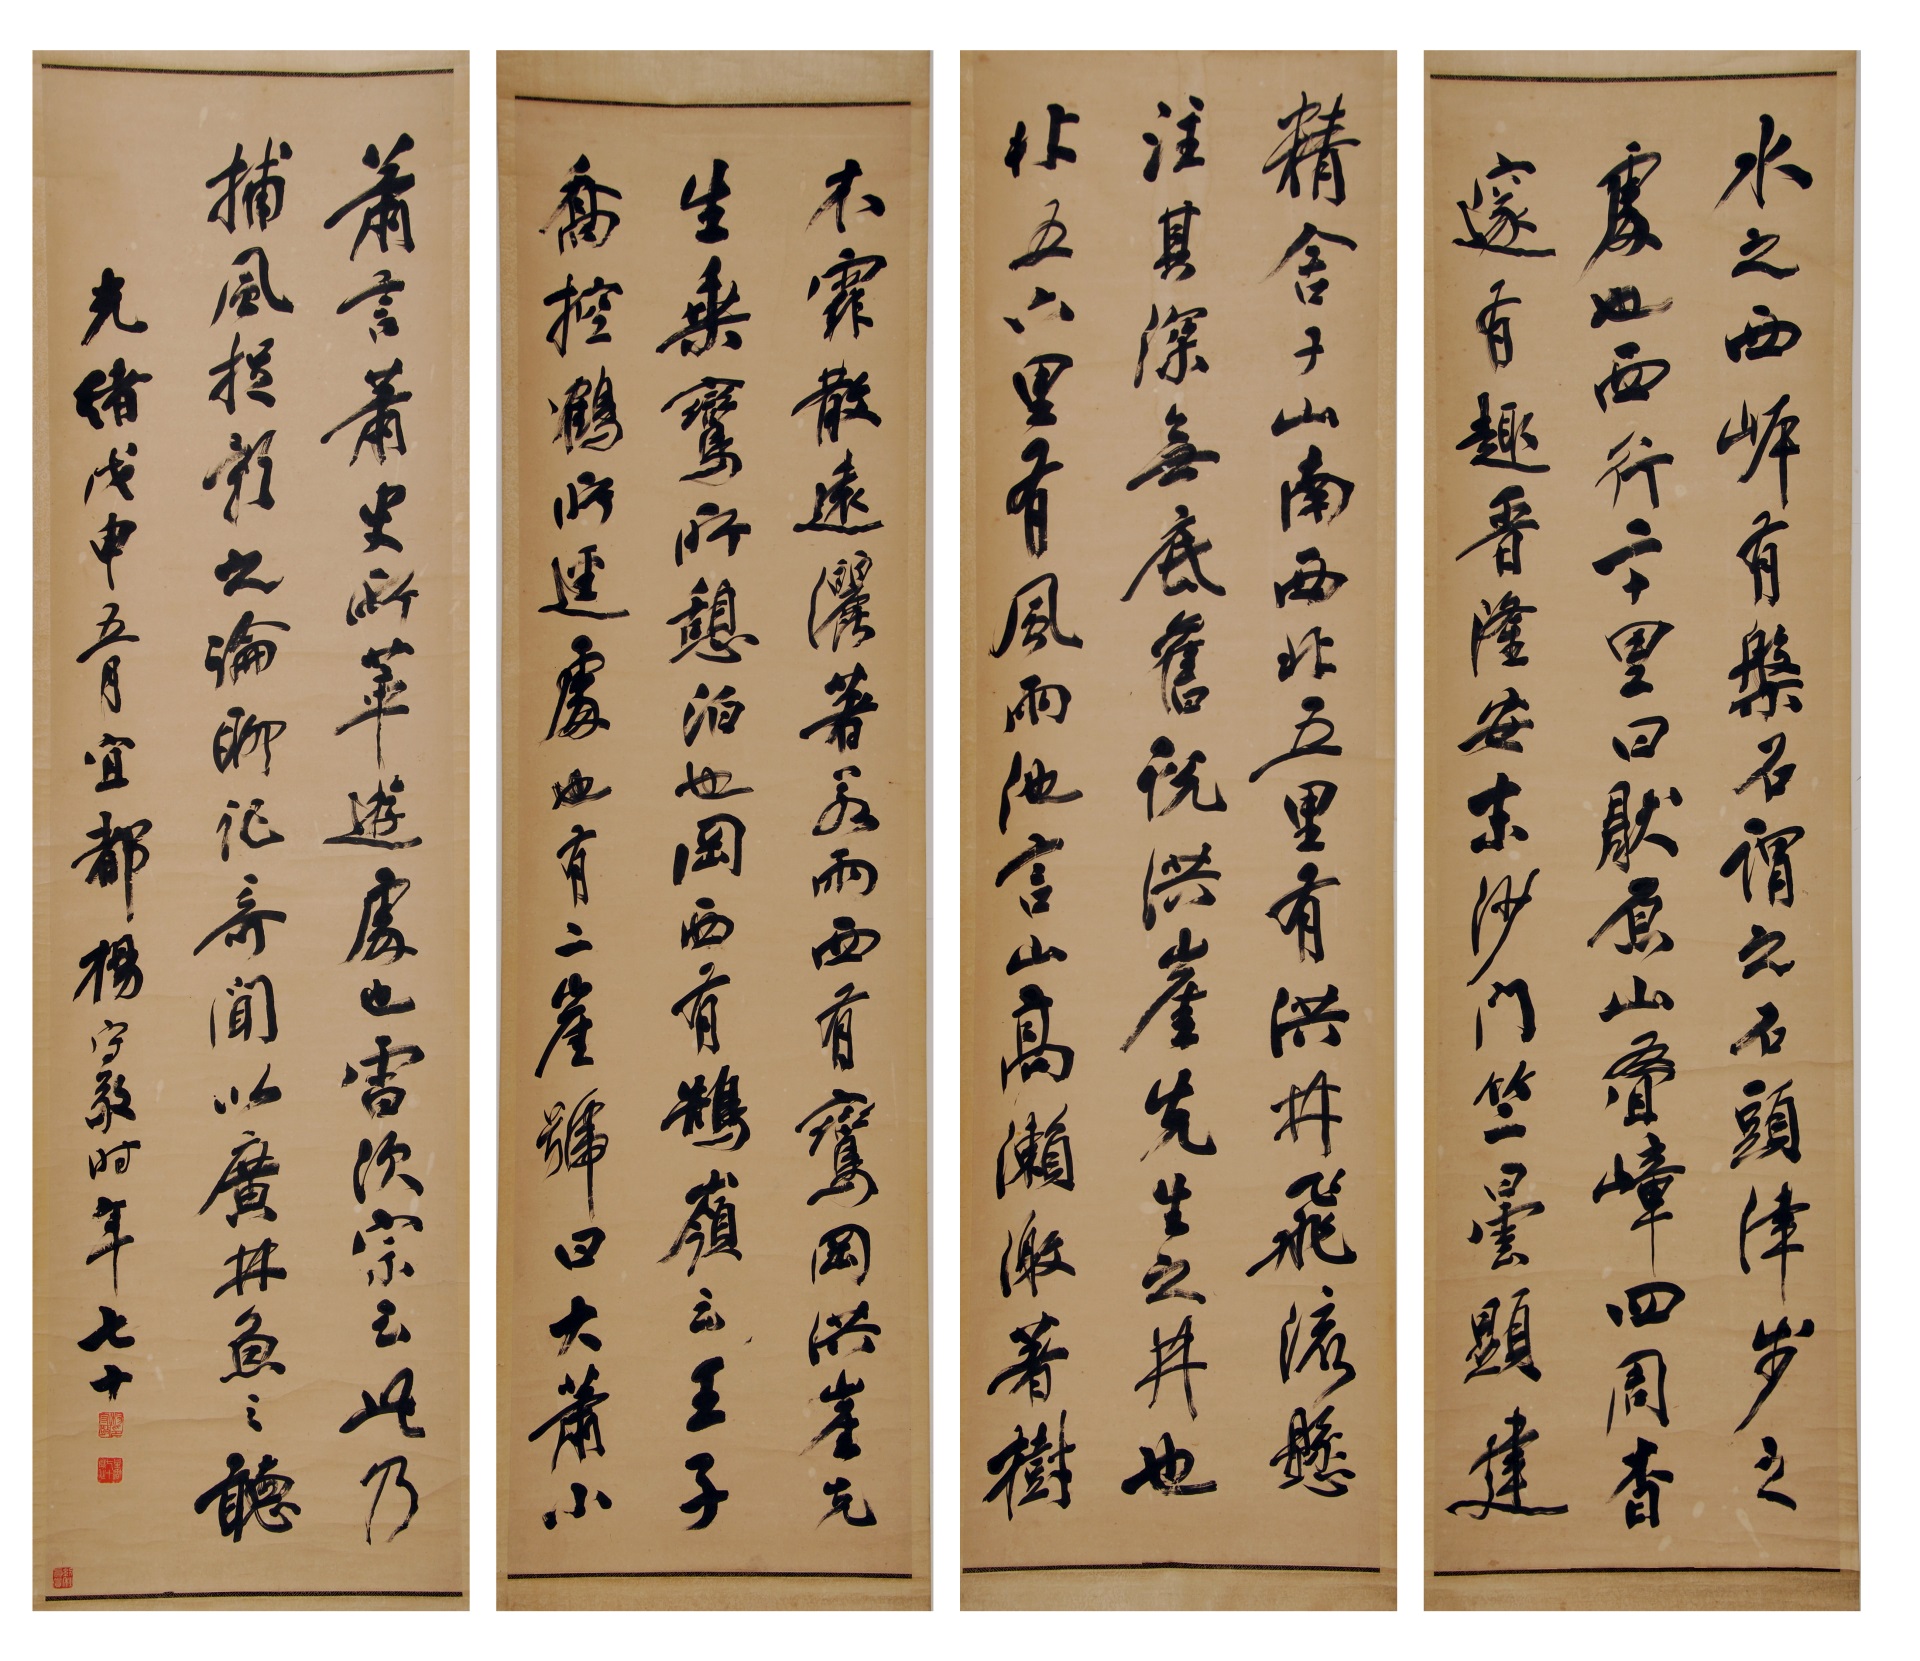 水之西岸有槃石謂之石頭津步之
處也西行二十里曰散原山疊嶂四周杳
邃有趣晉隆安末沙門竺曇顯建
精舍于山南西北五里有洪井飛流懸
注其深無底舊說洪崖先生之井也
北五六里有風雨池言山高瀨激著樹
木霏散遠灑著若雨西有鸞岡洪崖先
生乘鸞所憩泊也岡西有鵠嶺云王子
喬控鶴所逕處也有二崖號曰大蕭小
蕭言蕭史所萃遊處也雷次宗云此乃
捕風捉影之論聊記奇聞以廣井魚之聽
光緒戊申五月宜都楊守敬時年七十